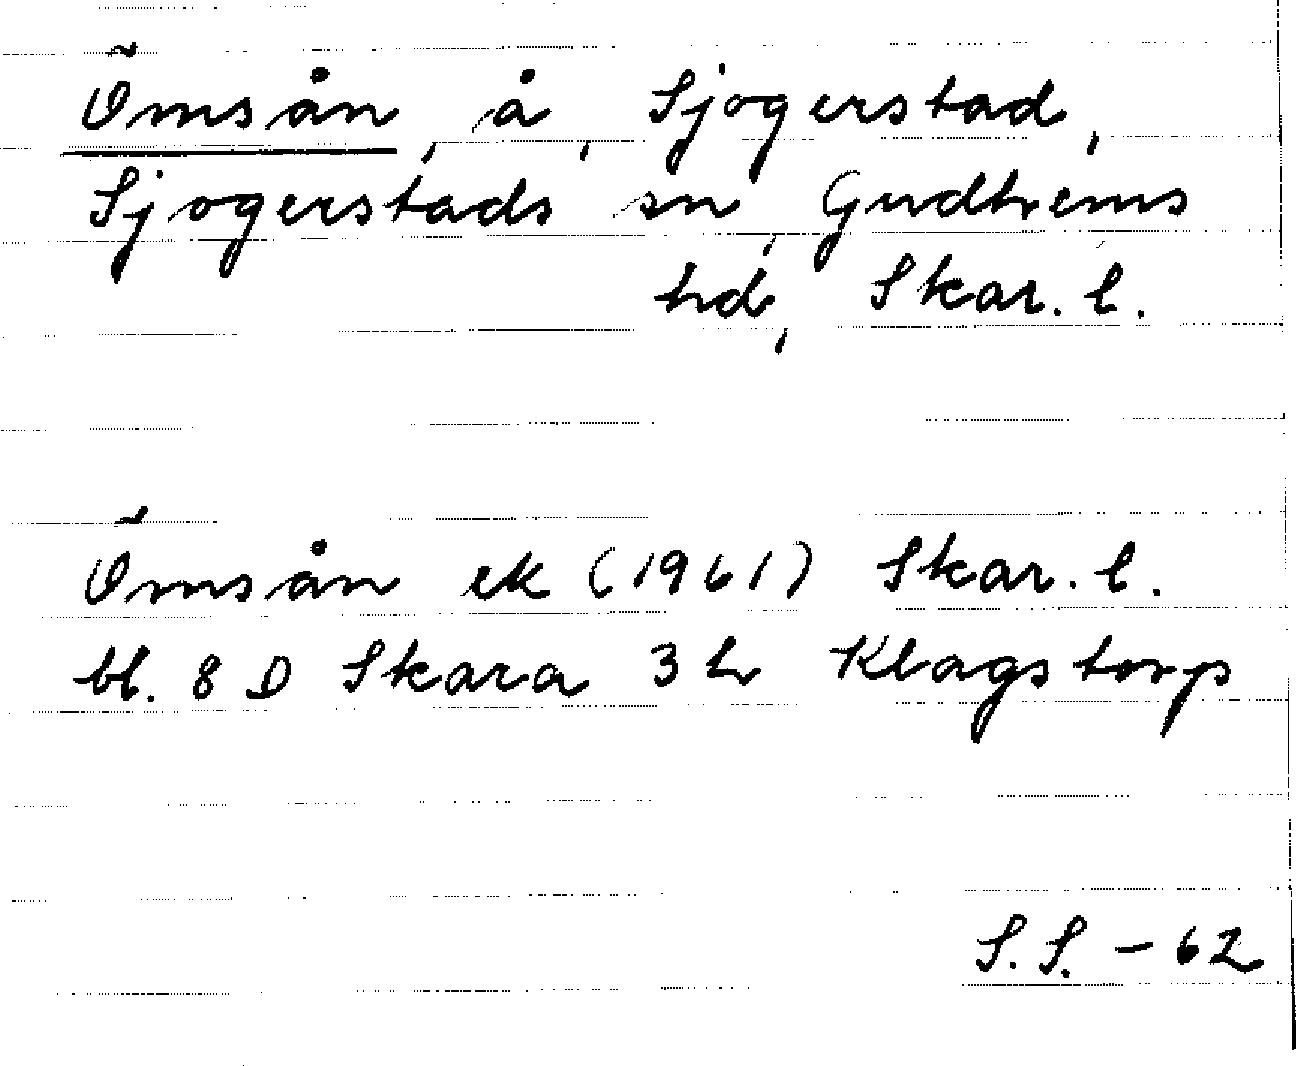 Ömsån, å, Sjogerstad,
Sjogerstads sn, Gudhems
hd, Skar. l.
Ömsån ek (1961) Skar. l.
bl. 8 D Skara 3 h Klagstorp
S. S. - 62